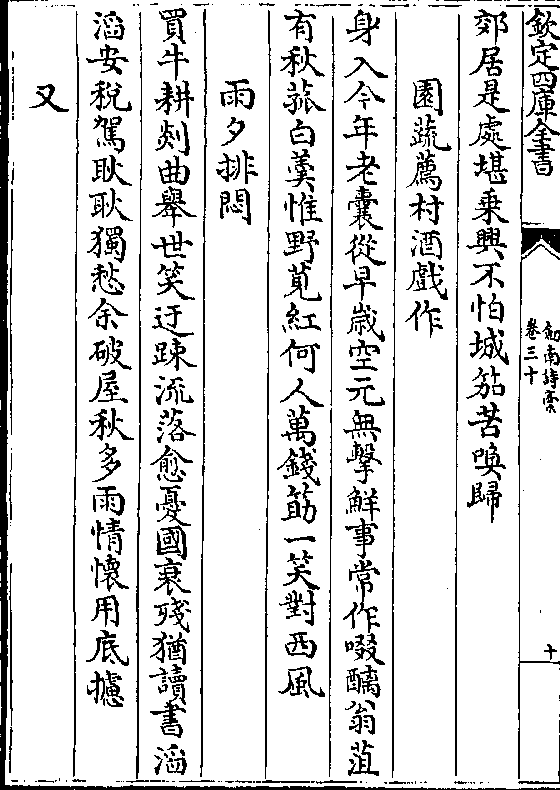 欽定四庫全書
劍南詩稾
卷三十
十
郊居是處堪乗興不怕城笳苦喚歸
園蔬薦村酒戲作
身入今年老囊從早歳空元無擊鮮事常作啜醨翁菹
有秋菰白羹惟野莧紅何人萬錢筯一笑對西風
雨夕排悶
買牛耕剡曲舉世笑迂踈流落愈憂國衰殘猶讀書滔
滔安税駕耿耿獨愁余破屋秋多雨情懷用底攄
又